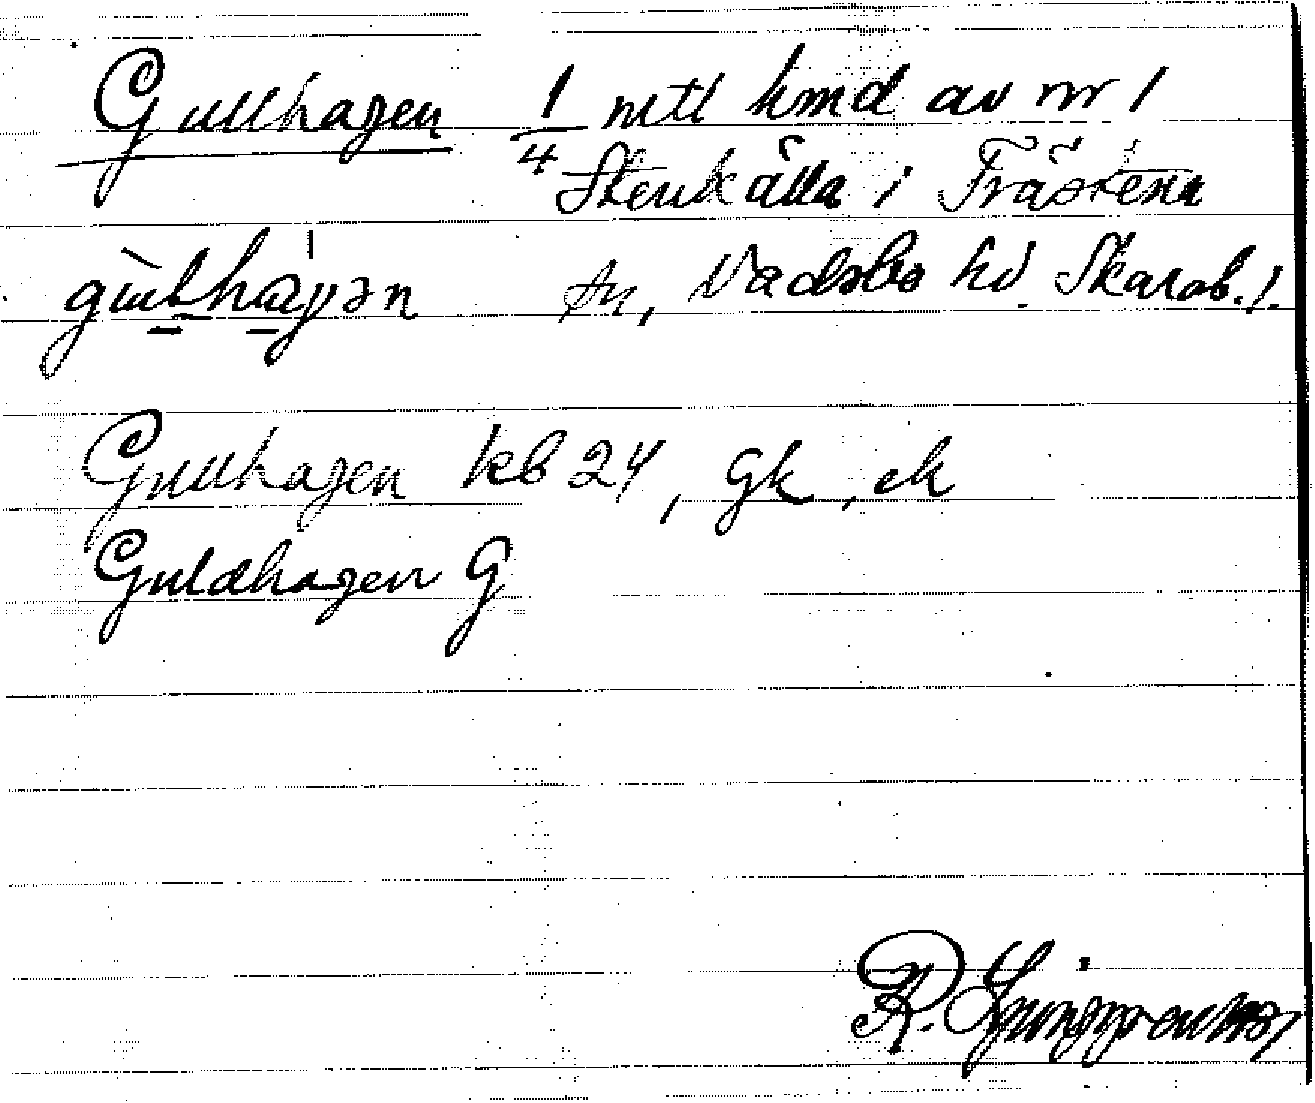 Gullhagen 1/4 mtl hmd av nr 1
Stenkälla i Trästena
sn, Vadsbo hd. Skarab. l.
Gullhagen kb 24, Gk, ek
Guldhagen G
R. Ljunggren